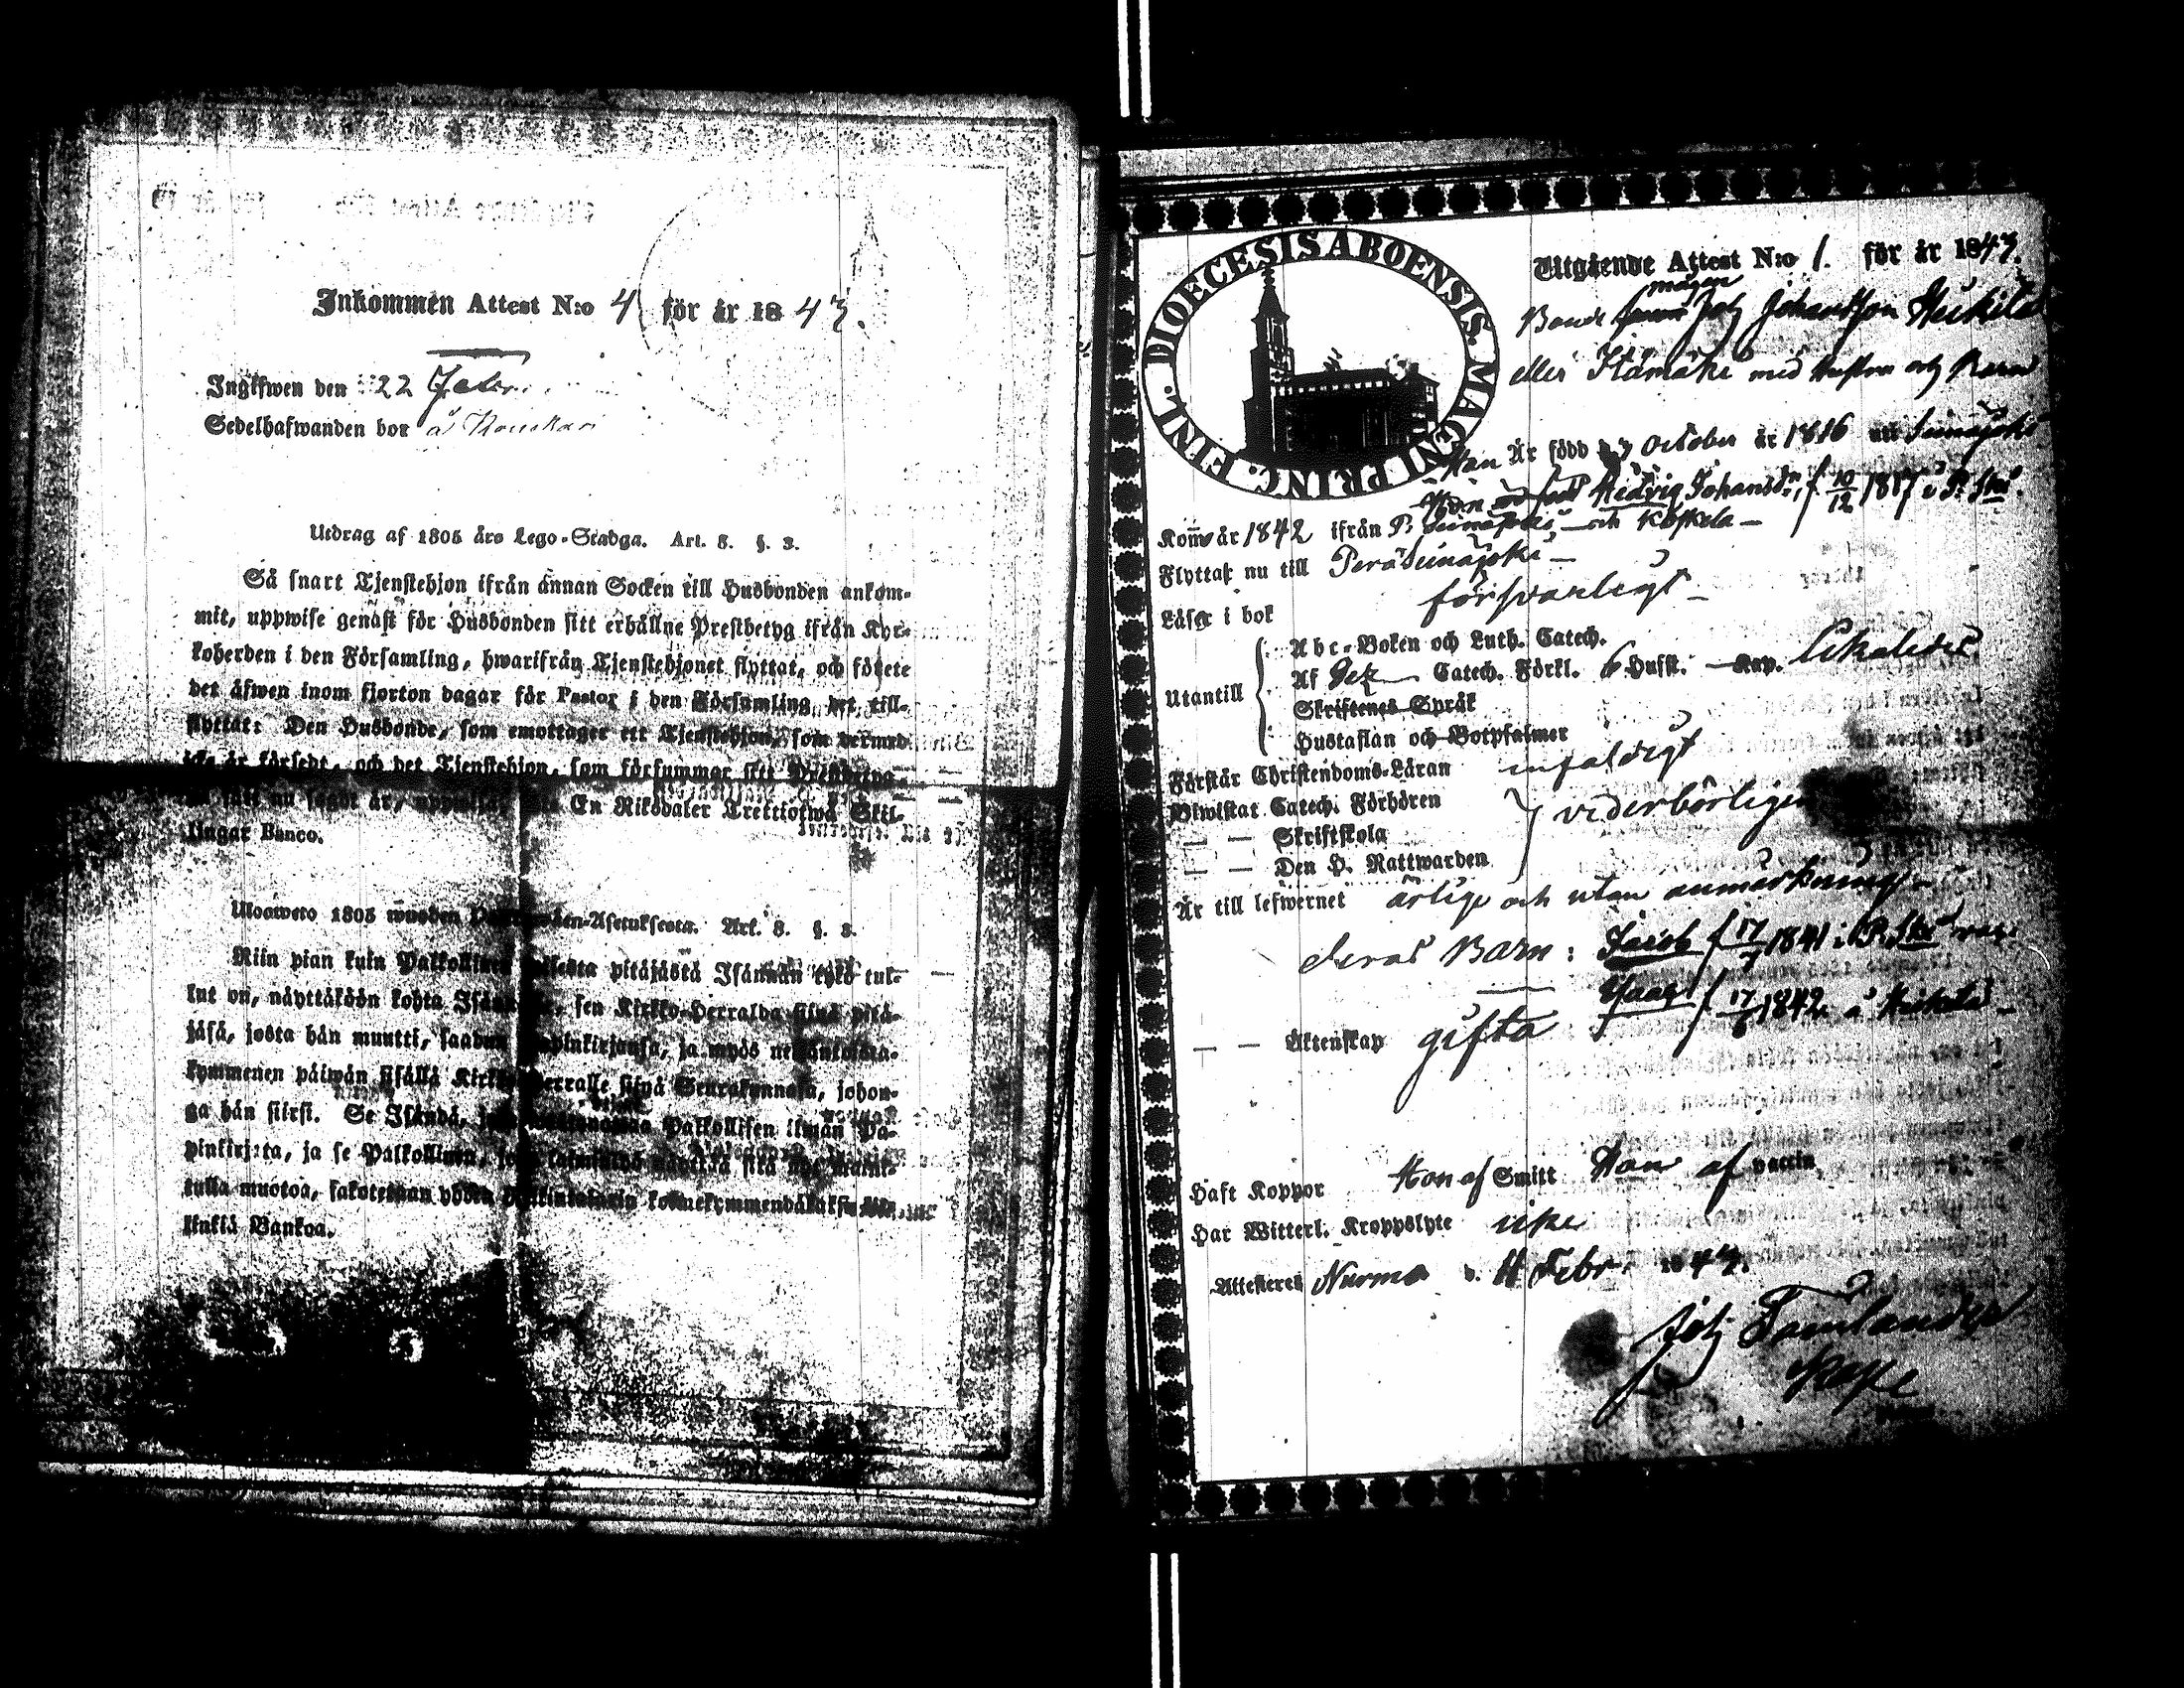 Inkommen Attest N:o 4 för år 1843.
Ingifwen den 22 Febr.
Sedelhafwanden bor å
Utdrag af 1805 års Lego-Stadga. Art. 8. §. 3.
Så snart Tjenstehjon ifrån annan Socken till Husbonden ankom-
mit, uppwise genast för Husbonden sitt erhållne Prestbetyg ifrån Kyr-
koherden i den Församling, hwarifrån Tjenstehjonet flyttat, och förete
det äfwen inom fjorton dagar för Pastor i den Församling, det till-
flyttat: Den Husbonde, som emottager ett Tjenstehjon, som dermed
icke är försedt, och det Tjenstehjon, som försummar sitt Prestbetyg
En Riksdaler Trettiotwå Skil-
lingar Banco.
Ulosweto 1805 wuoden Art. 8. §. 3.
Niin pian kuin Palkollinen toisesta pitäjästä Isännän tykö tul-
lut on, näyttäköön kohta Isännälle, sen Kirkko-Herralda siinä pitä-
jäsä, josta hän muutti, saadun papinkirjansa, ja myös
kymmenen päiwän sisällä Kirkko-Herralle siinä Seurakunnasa, johon-
ga hän siirsi. Se Isändä, Palkollisen ilman Pa-
pinkirjata, ja se Palkollinen,
tulla muotoa, sakotetaan
linkiä Bankoa.
DIOECESIS ABOENSIS. MAGNI PRINC. FINL.
Utgående Attest N:o 1. för år 1843.
mågen
Bonde Joh Johansson Heikilä
eller Itämäki med hustru och Barn
Han Är född 7 October år 1816 uti Seinäjoki
Hon är född Hedvig Johansdr, f. 10/12 1817 i P. Sjki.
Kom år 1842 ifrån P. Seinäjoki och Koskela —
Flyttar nu till Peräseinäjoki —
Läser i bok försvarligt —
Utantill
Abc-Boken och Luth. Catech.
Af Catech. Förkl. 6 Hufst. — Kap. likaledes
Skriftenes Språk
Hustaflan och Botpsalmer
Förstår Christendoms-Läran enfaldigt
Biwistat Catech. Förhören
— — Skriftskola } vederbörligen
— — Den H. Nattwarden
Är till lefwernet ärlige och utan anmärkning —
deras Barn: Jacob f 17/7 1841 i P. Sjki vac:
f 17/6 1842 å Heikilä —
— — Äktenskap gifta
Haft Koppor Hon af Smitt Han af vaccin
Har Witterl. Kroppslyte icke
Attesteres Nurmo d. 11 Febr. 1843.
Joh